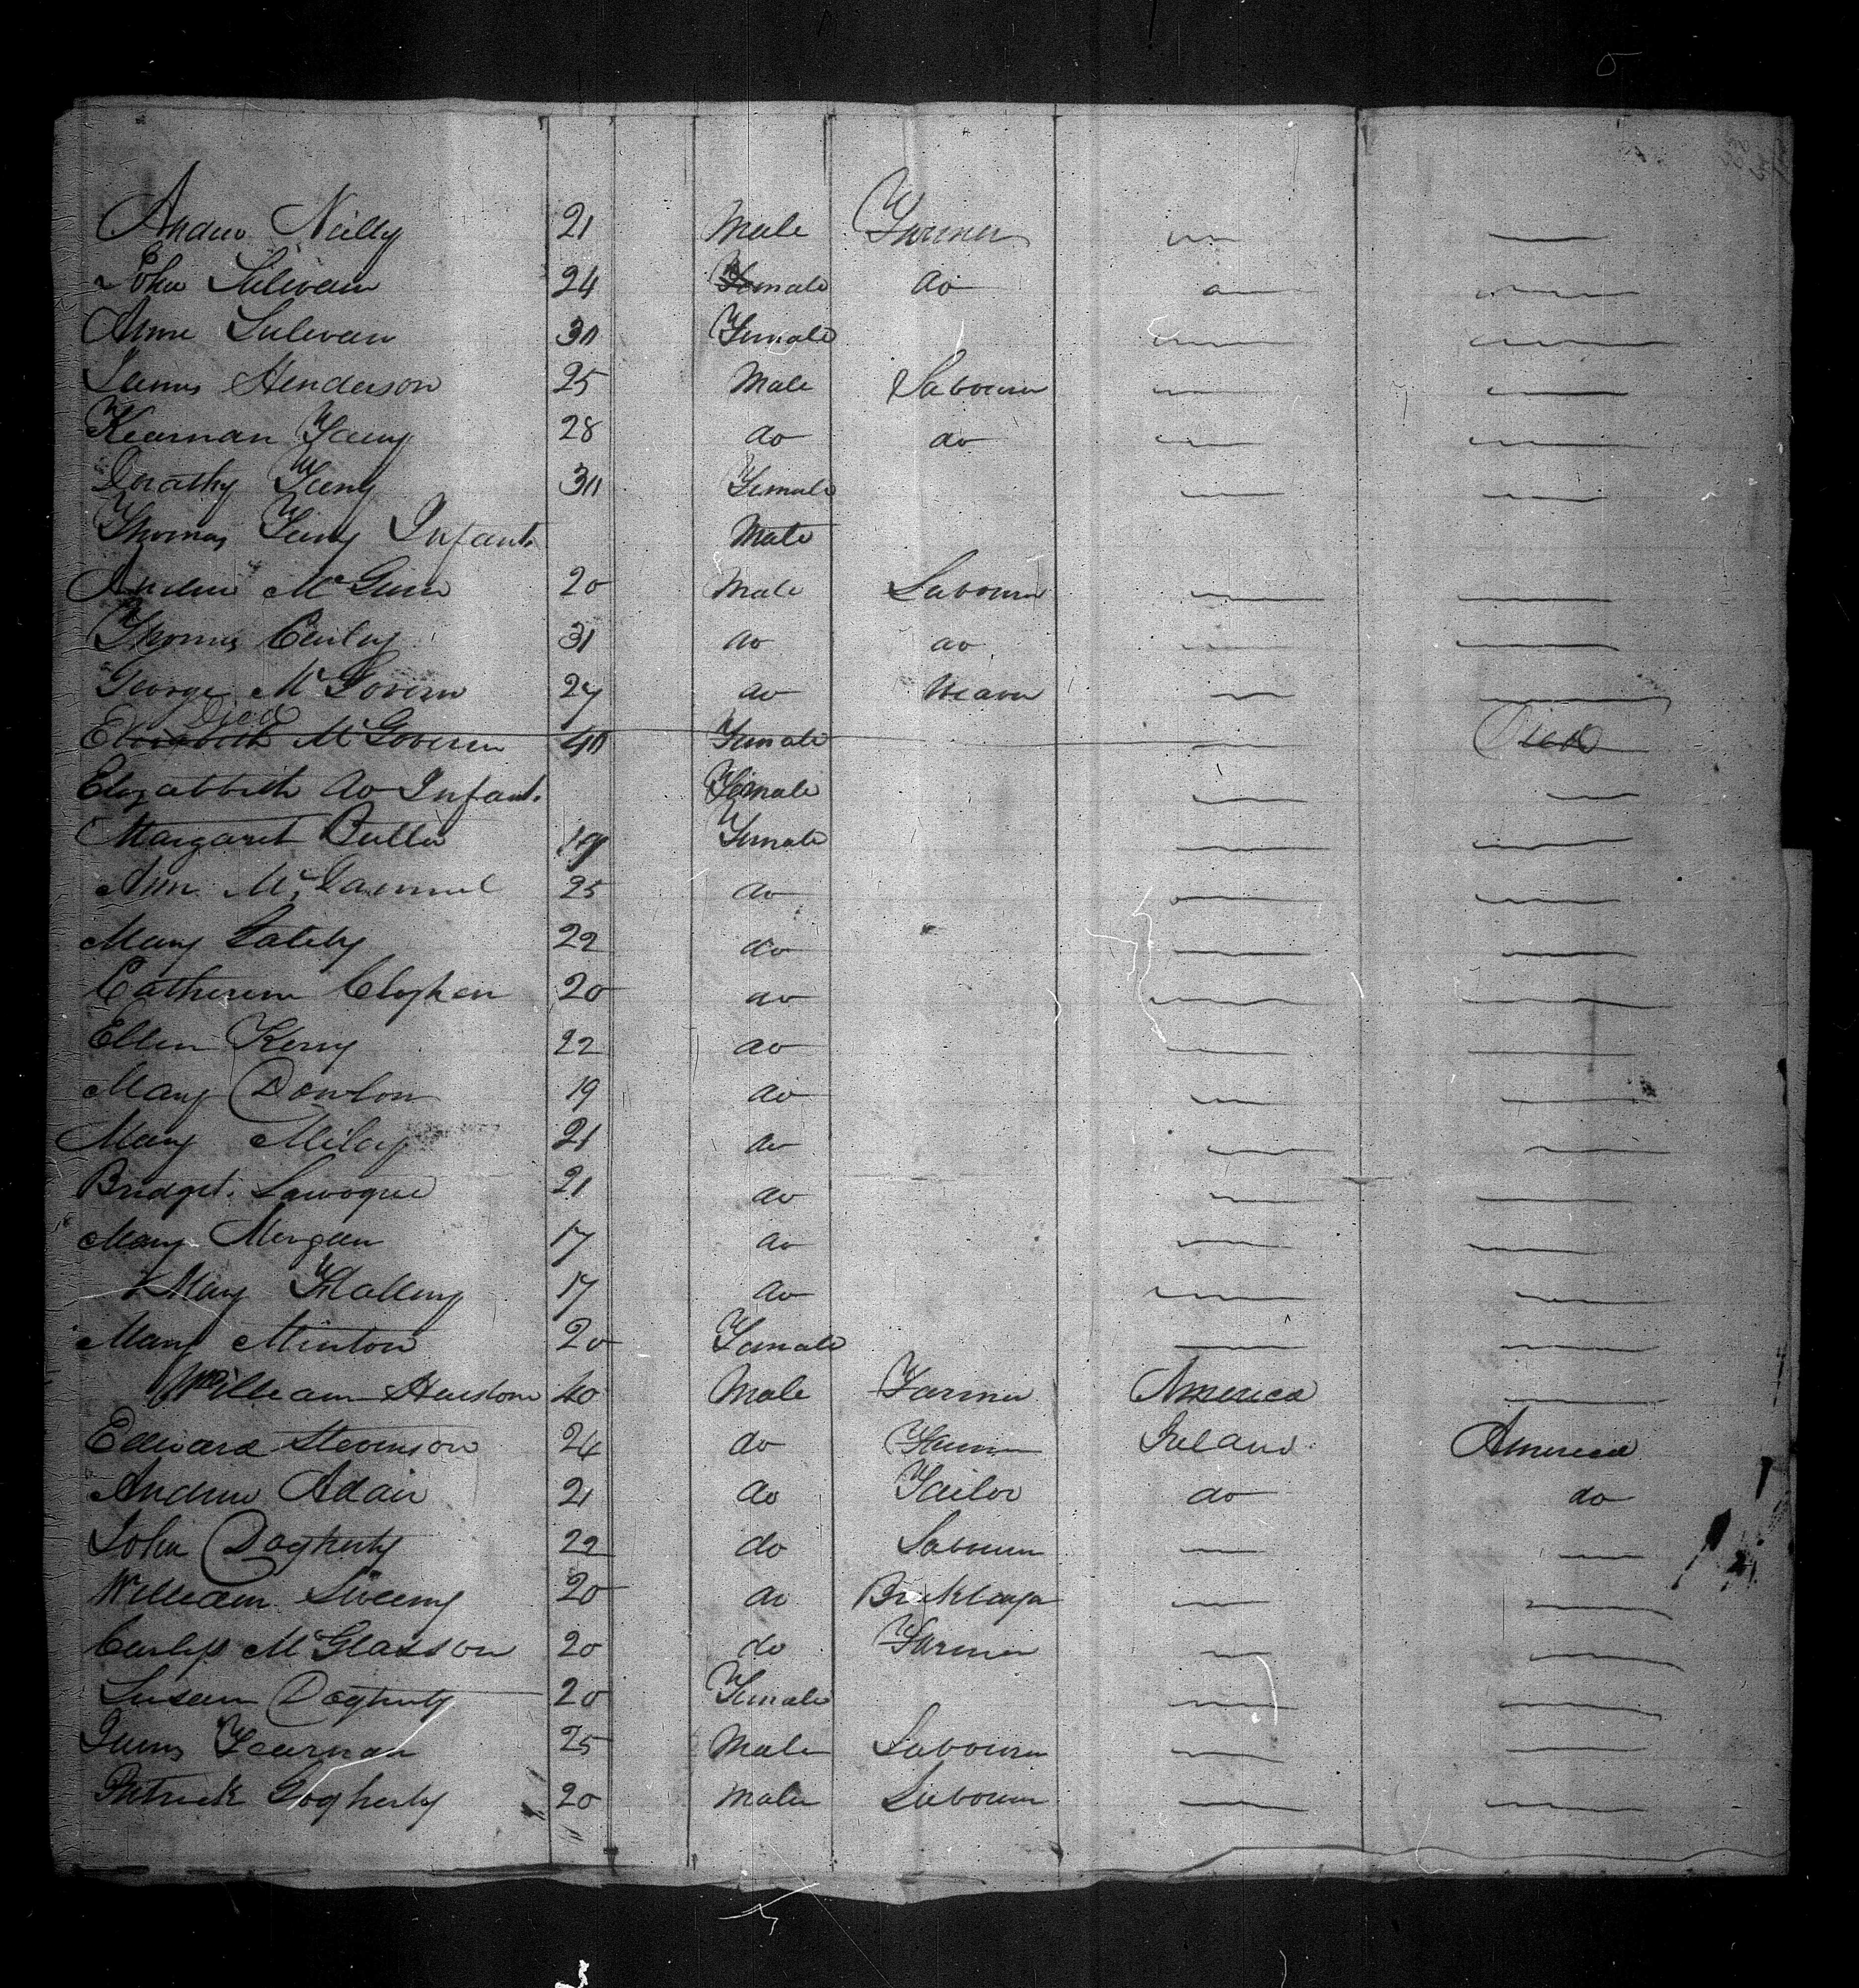 Andrew Neilly 21 Male Farmer
John Silivan 24 Male do
Anne Sulivan 30 Female
James Henderson 25 Male Labourer
Kearnan 28 do do
Dorathy 30 Female
Thomas Infant Male
Andrew McGinn 20 Male Labourer
Thomas 31 do do
George McGovern 27 do Weaver
Died
Elizabeth McGovern 40 Female Died
Elizabbith do Infant Female
Margaret Butler 19 Female
Ann 25 do
Mary 22 do
Catherine Cloghan 20 do
Ellen Kerry 22 do
Mary Dowlon 19 do
Mary 21 do
Bridget 21 do
Mary Morgan 17 do
Mary 17 do
Mary Minton 20 Female
William 40 Male Farmer America
Edward Stevenson 24 do Farmer Ireland America
Andrew Adair 21 do Tailor do do
John Dogherty 22 do Labourer
William 20 do Bricklayer
McGlasson 20 do Farmer
Susan Dogherty 20 Female
James 25 Male Labourer
Patrick Gogherty 20 Male Labourer